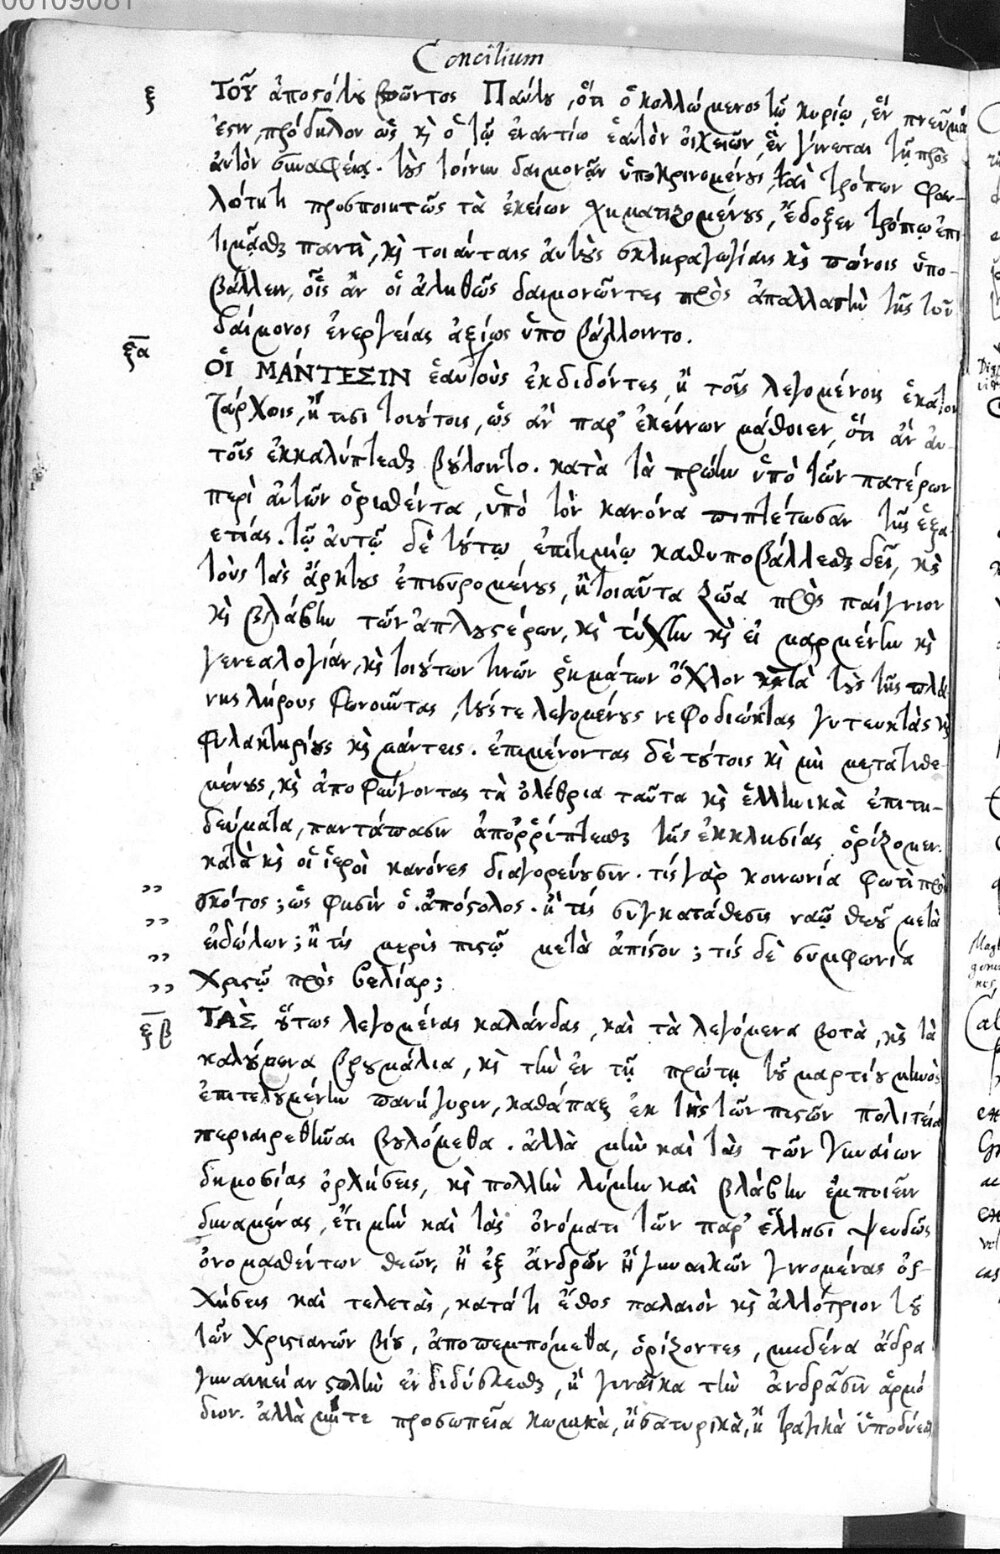 00109081
Concilium
ξ ΤΟΥ͂ ἀποστόλου βοῶντος Παύλου, ὅτι ὁ κολλώμενος τῷ κυρίῳ, ἓν πνεῦμά
ἐστιν, πρόδηλον ὡς καὶ ὁ τῷ ἐναντίῳ ἑαυτὸν οἰκειῶν, ἓν γίνεται τῇ πρὸς
αὐτὸν συναφείᾳ. τοὺς τοίνυν δαιμονᾷν ὑποκρινομένους, καὶ τρόπων φαυ-
λότητι προσποιητῶς τὰ ἐκείνων σχηματιζομένους, ἔδοξεν τρόπῳ ἐπι
τιμᾶσθαι παντὶ, καὶ τοιαύταις αὐτοὺς σκληραγωγίαις καὶ πόνοις ὑπο-
βάλλειν, οἷς ἂν οἱ ἀληθῶς δαιμονῶντες πρὸς ἀπαλλαγὴν τῆς τοῦ
δαίμονος ἐνεργείας ἀξίως ὑποβάλλοιντο.
ξα ΟἹ ΜΆΝΤΕΣΙΝ ἑαυτοὺς ἐκδιδόντες, ἢ τοῖς λεγομένοις ἑκατον
τάρχοις, ἤ τισι τοιούτοις, ὡς ἂν παρ' ἐκείνων μάθοιεν, ὅτι ἂν αὐ-
τοῖς ἐκκαλύπτεσθαι βούλοιντο. κατὰ τὰ πρώην ὑπὸ τῶν πατέρων
περὶ αὐτῶν ὁρισθέντα, ὑπὸ τὸν κανόνα πιπτέτωσαν τῆς ἑξα-
ετίας. τῷ αὐτῷ δὲ τούτῳ ἐπιτιμίῳ καθυποβάλλεσθαι δεῖ, καὶ
τοὺς τὰς ἄρκτους ἐπισυρομένους, ἢ τοιαῦτα ζῶα πρὸς παίγνιον
καὶ βλάβην τῶν ἁπλουστέρων, καὶ τύχην καὶ εἱμαρμένην καὶ
γενεαλογίαν, καὶ τοιούτων τινῶν ῥημάτων ὄχλον κατὰ τοὺς τῆς πλά
νης λήρους φωνοῦντας, τούς τε λεγομένους νεφοδιώκτας γητευτὰς καὶ
φυλακτηρίους καὶ μάντεις. ἐπιμένοντας δὲ τούτοις καὶ μὴ μετατιθε-
μένους, καὶ ἀποφεύγοντας τὰ ὀλέθρια ταῦτα καὶ ἑλληνικὰ ἐπιτη-
δεύματα, παντάπασιν ἀποῤῥίπτεσθαι τῆς ἐκκλησίας ὁρίζομεν.
καθὰ καὶ οἱ ἱεροὶ κανόνες διαγορεύουσιν. τίς γὰρ κοινωνία φωτὶ πρὸς
,, σκότος; ὥς φησιν ὁ ἀπόστολος. ἢ τίς συγκατάθεσις ναῷ θεοῦ μετὰ
,, εἰδώλων; ἢ τίς μερὶς πιστῷ μετὰ ἀπίστου; τίς δὲ συμφωνία
,, Χριστῷ πρὸς Βελίαρ;
ξβ ΤΑΣ οὕτως λεγομένας καλάνδας, καὶ τὰ λεγόμενα βοτὰ, καὶ τὰ
καλούμενα βρουμάλια, καὶ τὴν ἐν τῇ πρώτῃ τοῦ μαρτίου μηνὸς
ἐπιτελουμένην πανήγυριν, καθάπαξ ἐκ τῆς τῶν πιστῶν πολιτείας
περιαιρεθῆναι βουλόμεθα. ἀλλὰ μὴν καὶ τὰς τῶν γυναίων
δημοσίας ὀρχήσεις, καὶ πολλὴν λύμην καὶ βλάβην ἐμποιεῖν
δυναμένας, ἔτι μὴν καὶ τὰς ὀνόματι τῶν παρ' ἕλλησι ψευδῶς
ὀνομασθέντων θεῶν, ἢ ἐξ ἀνδρῶν ἢ γυναικῶν γινομένας ὀρ-
χήσεις καὶ τελετὰς, κατά τι ἔθος παλαιὸν καὶ ἀλλότριον τοῦ
τῶν Χριστιανῶν βίου, ἀποπεμπόμεθα, ὁρίζοντες, μηδένα ἄδρα
γυναικείαν στολὴν ἐνδιδύσκεσθαι, ἢ γυναῖκα τὴν ἀνδράσιν ἁρμό
διον. ἀλλὰ μήτε προσωπεῖα κωμικὰ, ἢ σατυρικὰ, ἢ τραγικὰ ὑποδύεσθαι